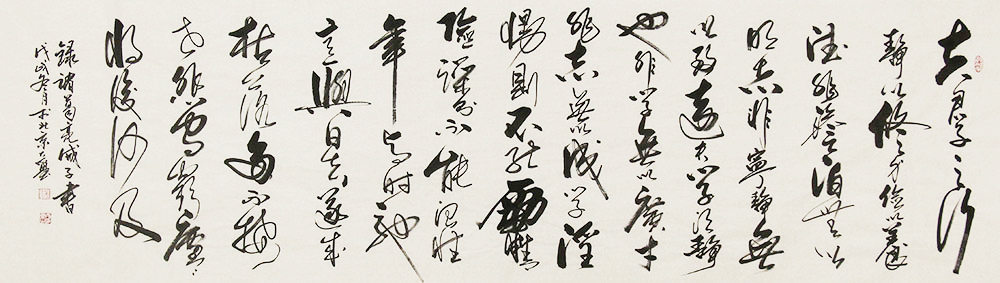 夫君子之行
靜以修身儉以養
德非澹泊無以
明志非寧靜無
以致遠夫學須靜
也非學無以廣才
非志無以成學淫
慢則不能勵精
險躁則不能治性
年與時馳
意與日去遂成
枯落多不接
世悲守窮廬
將復何及
錄諸葛亮誡子書
戊戌冬月於北京